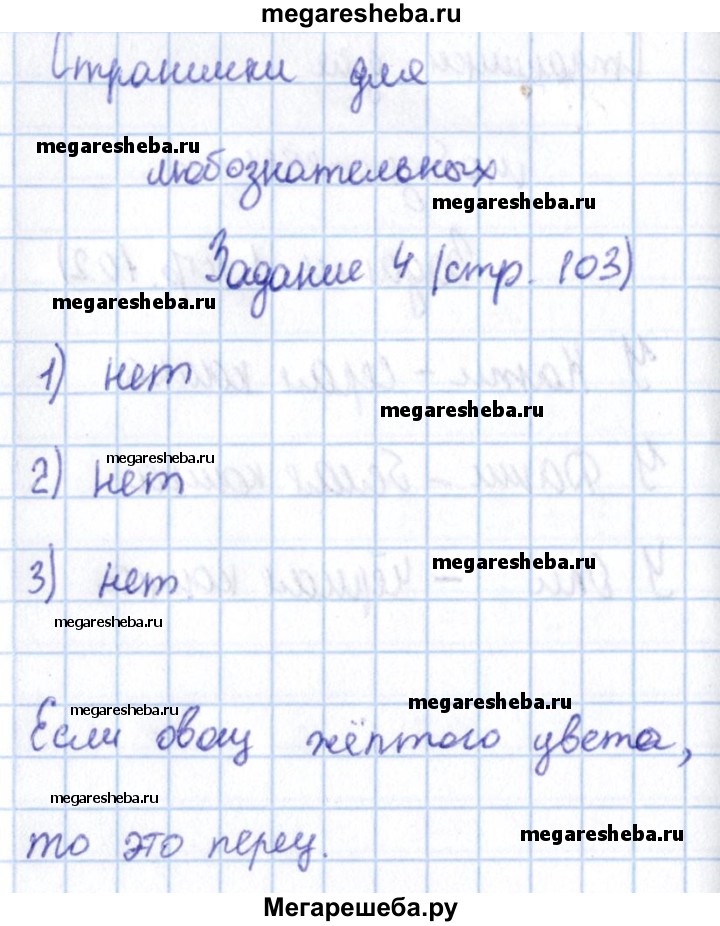 megaresheba.ru
Странички для
megaresheba.ru
любознательных
megaresheba.ru
Задание 4 (стр. 103)
megaresheba.ru
1) нет
megaresheba.ru
megaresheba.ru
2) нет
megaresheba.ru
3) нет
megaresheba.ru
megaresheba.ru
megaresheba.ru
Если овощ жёлтого цвета,
megaresheba.ru
megaresheba.ru
то это перец.
Мегарешеба.ру